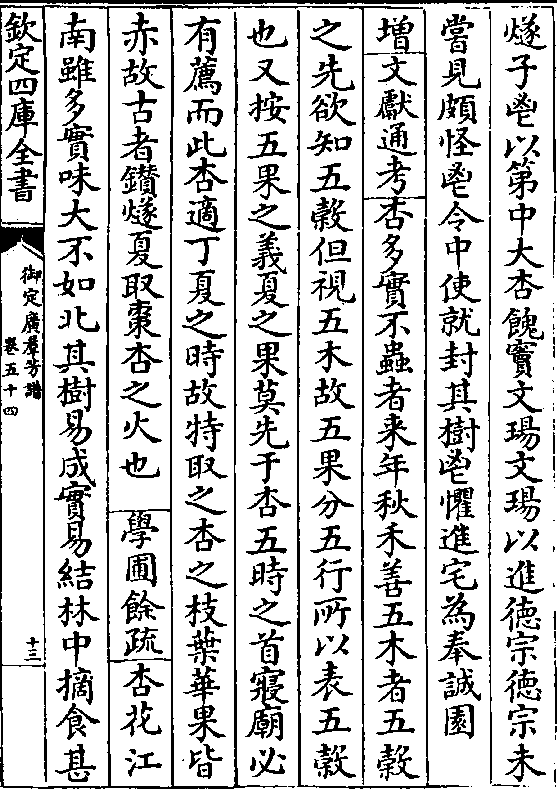 燧子鬯以第中大杏餽竇文瑒文瑒以進徳宗徳宗未
嘗見頗怪鬯令中使就封其樹鬯懼進宅為奉誠園
増文獻通考杏多實不蟲者来年秋禾善五木者五榖
之先欲知五榖但視五木故五果分五行所以表五榖
也又按五果之義夏之果莫先于杏五時之首寝廟必
有薦而此杏適丁夏之時故特取之杏之枝葉華果皆
赤故古者鑚燧夏取棗杏之火也　學圃餘疏杏花江
南雖多實味大不如北其樹易成實易結林中摘食甚
欽定四庫全書
御定廣羣芳譜
卷五十四
十三